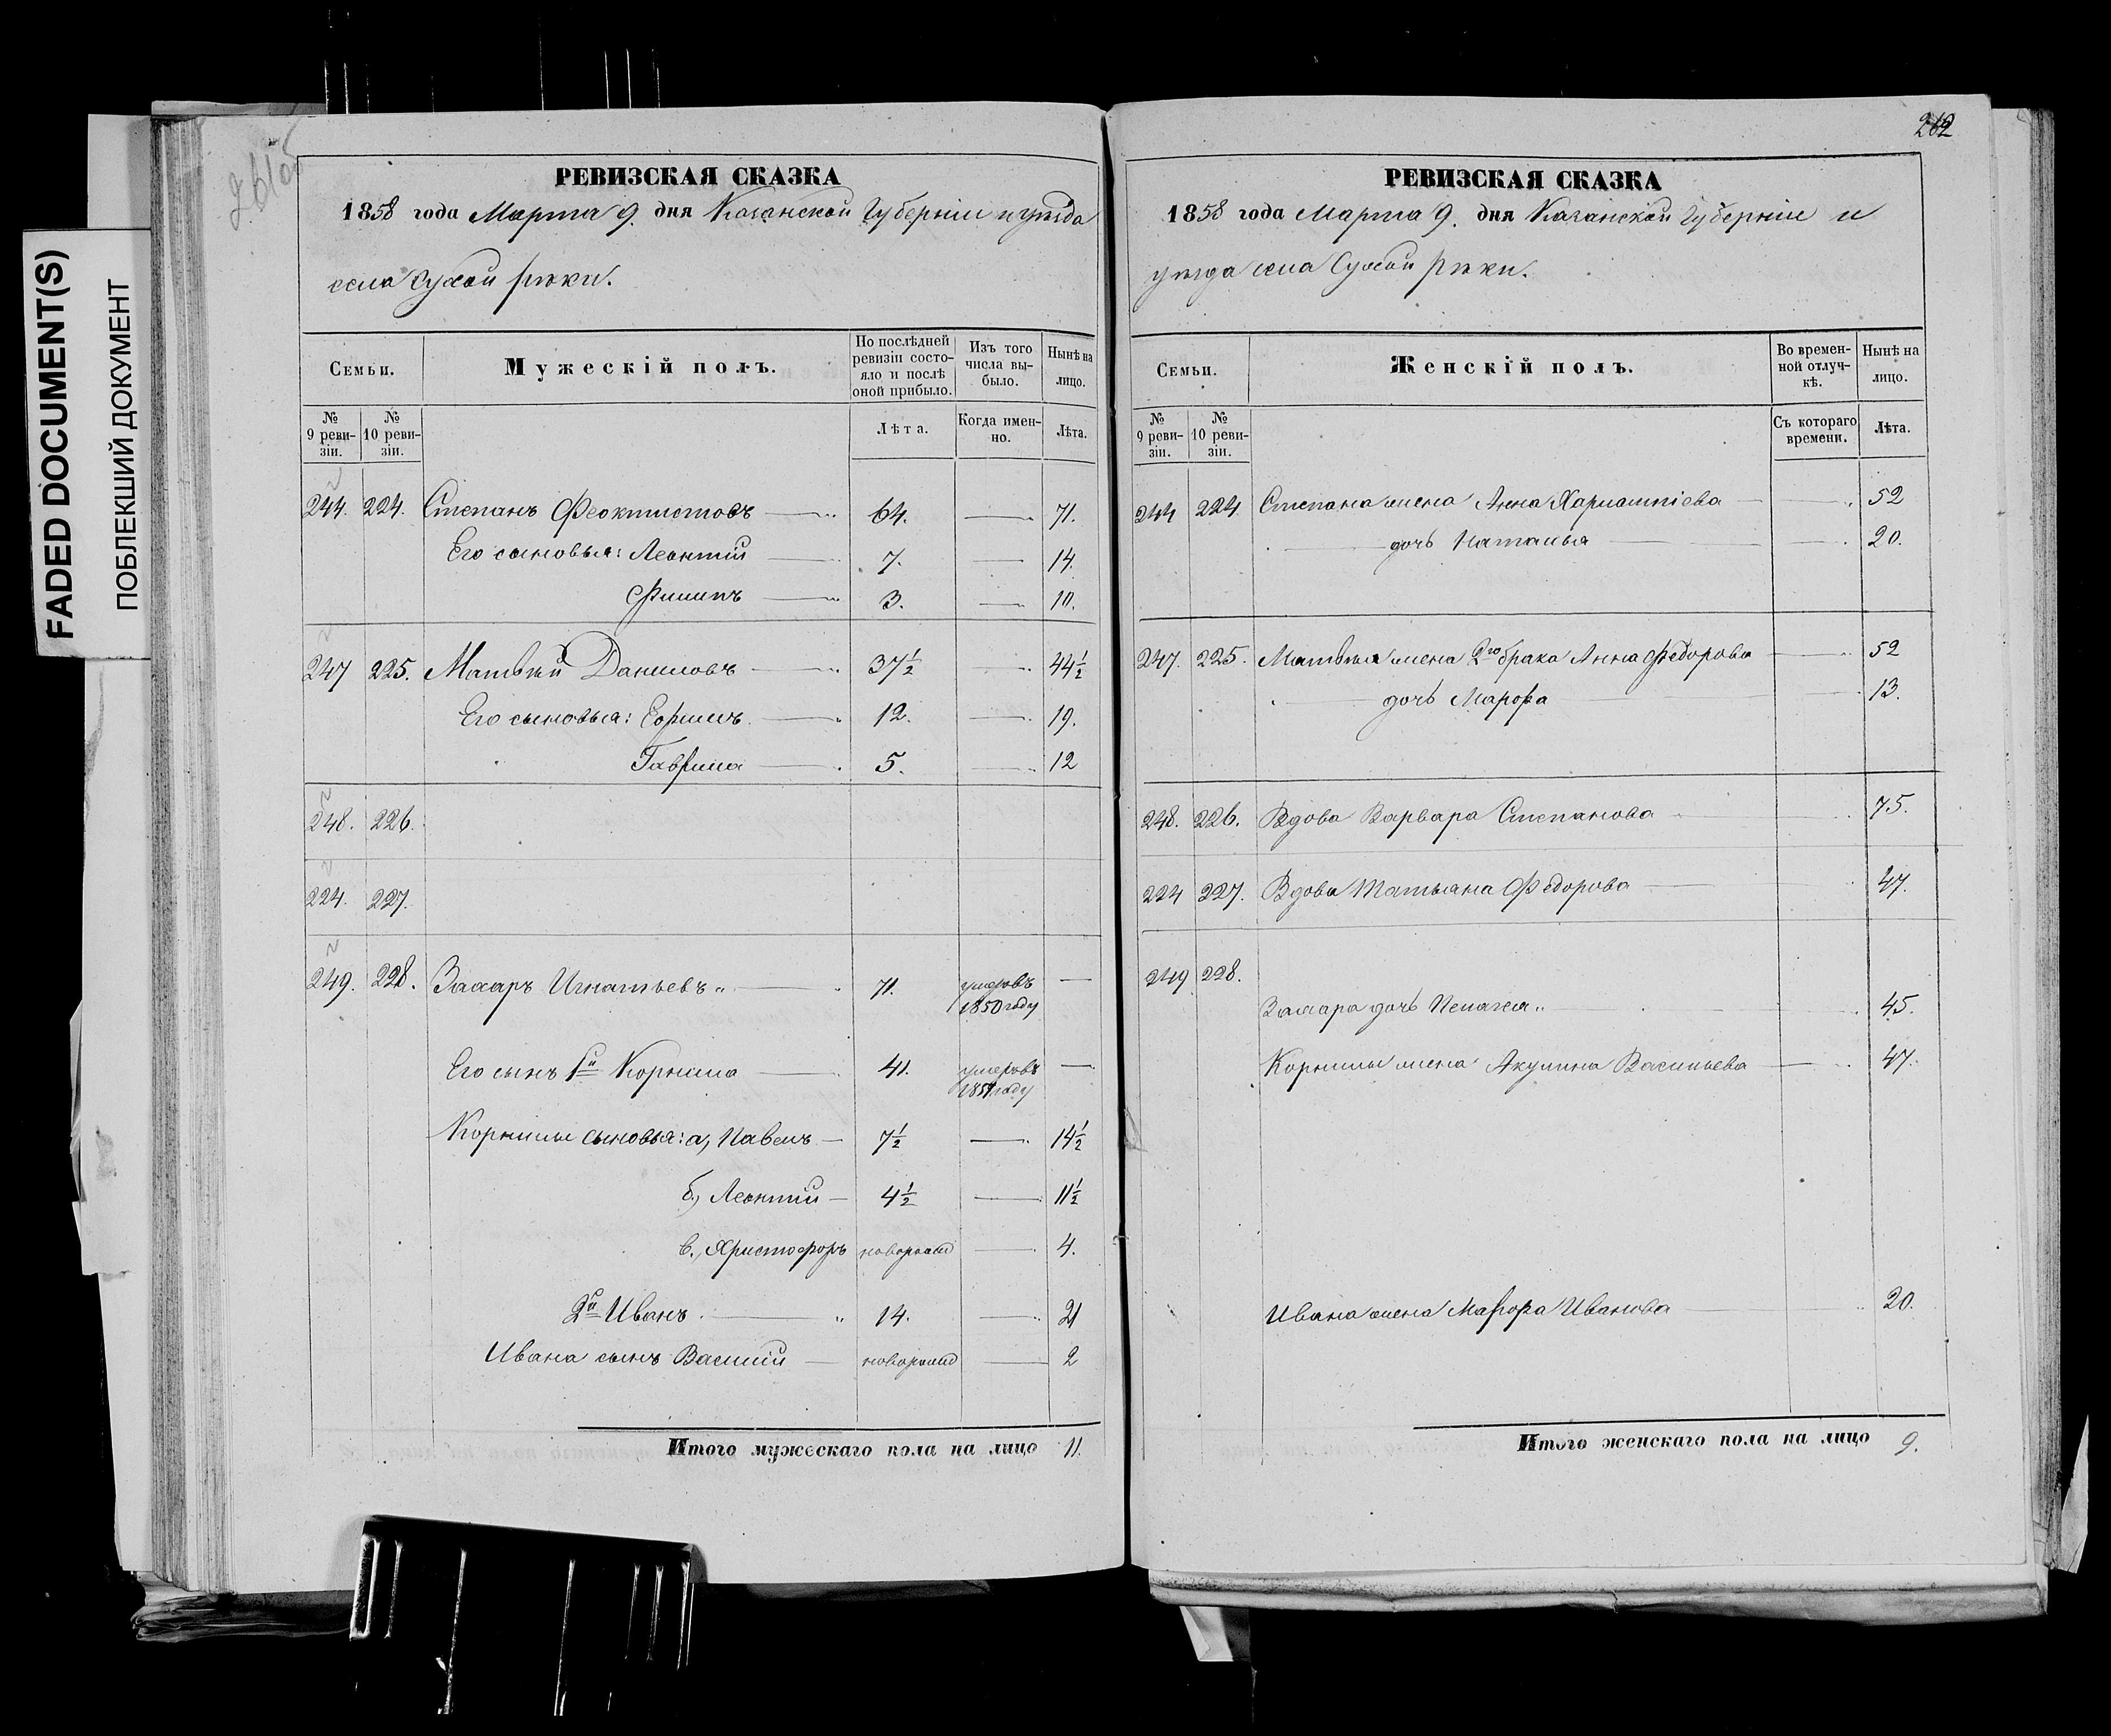 FADED DOCUMENT(S)
ПОБЛЕКШИЙ ДОКУМЕНТ
РЕВИЗСКАЯ СКАЗКА
1858 года Марта 9. дня Казанской Губерніи и уѣзда
села Сухой рѣки.
Семьи.
Мужескій полъ.
По послѣдней ревизіи состояло и послѣ оной прибыло.
Изъ того числа выбыло.
Нынѣ на лицо.
№ 9 ревизіи.
№ 10 ревизіи.
Лѣта.
Когда именно.
Лѣта.
244. 224. Степанъ Феоктистовъ 64. 71.
Его сыновья: Леонтій 7. 14.
Филипъ 3. 10.
247 225. Матвѣй Даниловъ 37½ 44½
Его сыновья: Ефимъ 12. 19.
Гаврила 5. 12
248. 226.
224. 227.
249. 228. Захаръ Игнатьевъ 71. умеръ въ 1850 году —
Его сынъ 1й Корнила 41. умеръ въ 1851 году —
Корнилы сыновья: а, Павелъ 7½ 14½
б, Леонтій 4½ 11½
в, Христофоръ новорожд 4.
2й Иванъ 14. 21
Ивана сынъ Василій новорожд 2
Итого мужескаго пола на лицо 11.
262
РЕВИЗСКАЯ СКАЗКА
1858 года Марта 9. дня Казанской Губерніи и
уѣзда села Сухой рѣки.
Семьи.
Женскій полъ.
Во временной отлучкѣ.
Нынѣ на лицо.
№ 9 ревизіи.
№ 10 ревизіи.
Съ котораго времени.
Лѣта.
244 224 Степана жена Анна Харлампіева 52
дочь Наталья 20.
247. 225. Матвѣя жена 2го брака Анна Федорова 52
дочь Марфа 13.
248. 226. Вдова Варвара Степанова 75.
224 227. Вдова Татьяна Федорова 47.
249 228.
Захара дочь Пелагея 45.
Корнилы жена Акулина Васильева 47.
Ивана жена Марфа Иванова 20.
Итого женскаго пола на лицо 9.